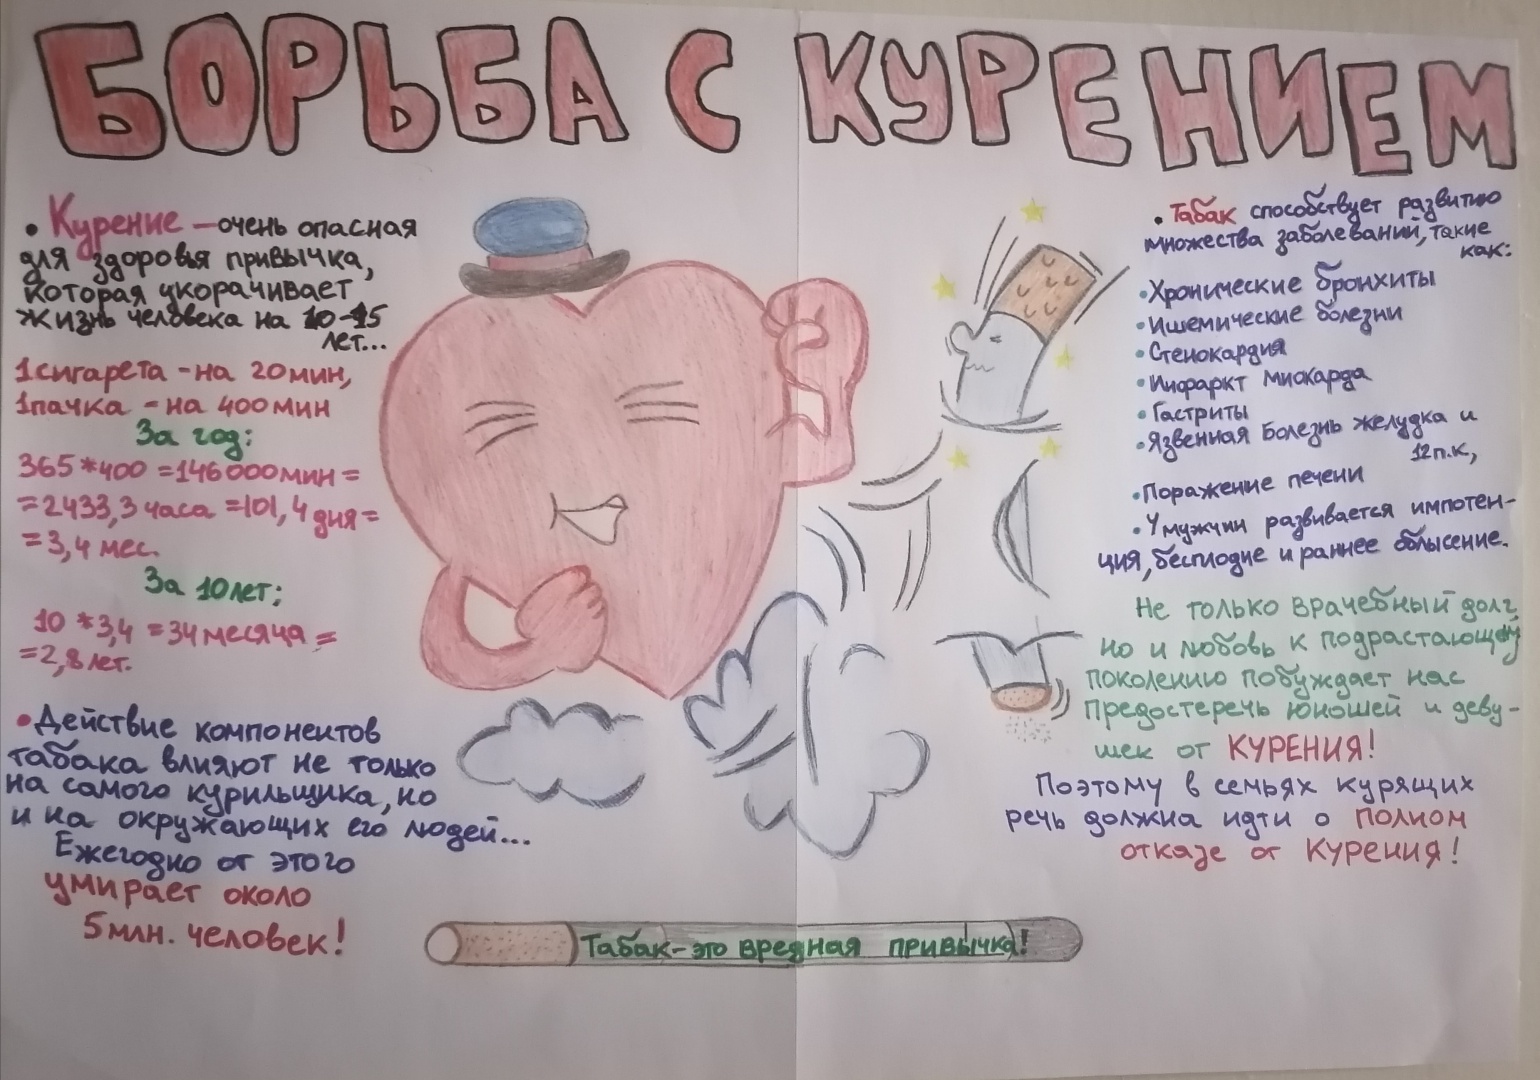 БОРЬБА С КУРЕНИЕМ
• Курение – очень опасная
для здоровья привычка,
которая укорачивает
жизнь человека на 10-15
лет...
1 сигарета - на 20 мин,
1 пачка - на 400 мин
За год:
365 * 400 = 146000 мин =
= 2433,3 часа = 101,4 дня =
= 3,4 мес.
За 10 лет:
10 * 3,4 = 34 месяца =
= 2,8 лет.
• Действие компонентов
табака влияют не только
на самого курильщика, но
и на окружающих его людей...
Ежегодно от этого
умирает около
5 млн. человек!
• Табак способствует развитию
множества заболеваний, такие
как:
• Хронические бронхиты
• Ишемические болезни
• Стенокардия
• Инфаркт миокарда
• Гастриты
• Язвенная болезнь желудка и
12 п.к,
• Поражение печени
• У мужчин развивается импотен-
ция, бесплодие и раннее облысение.
Не только врачебный долг,
но и любовь к подрастающему
поколению побуждает нас
предостеречь юношей и деву-
шек от КУРЕНИЯ!
Поэтому в семьях курящих
речь должна идти о полном
отказе от КУРЕНИЯ!
Табак - это вредная привычка!